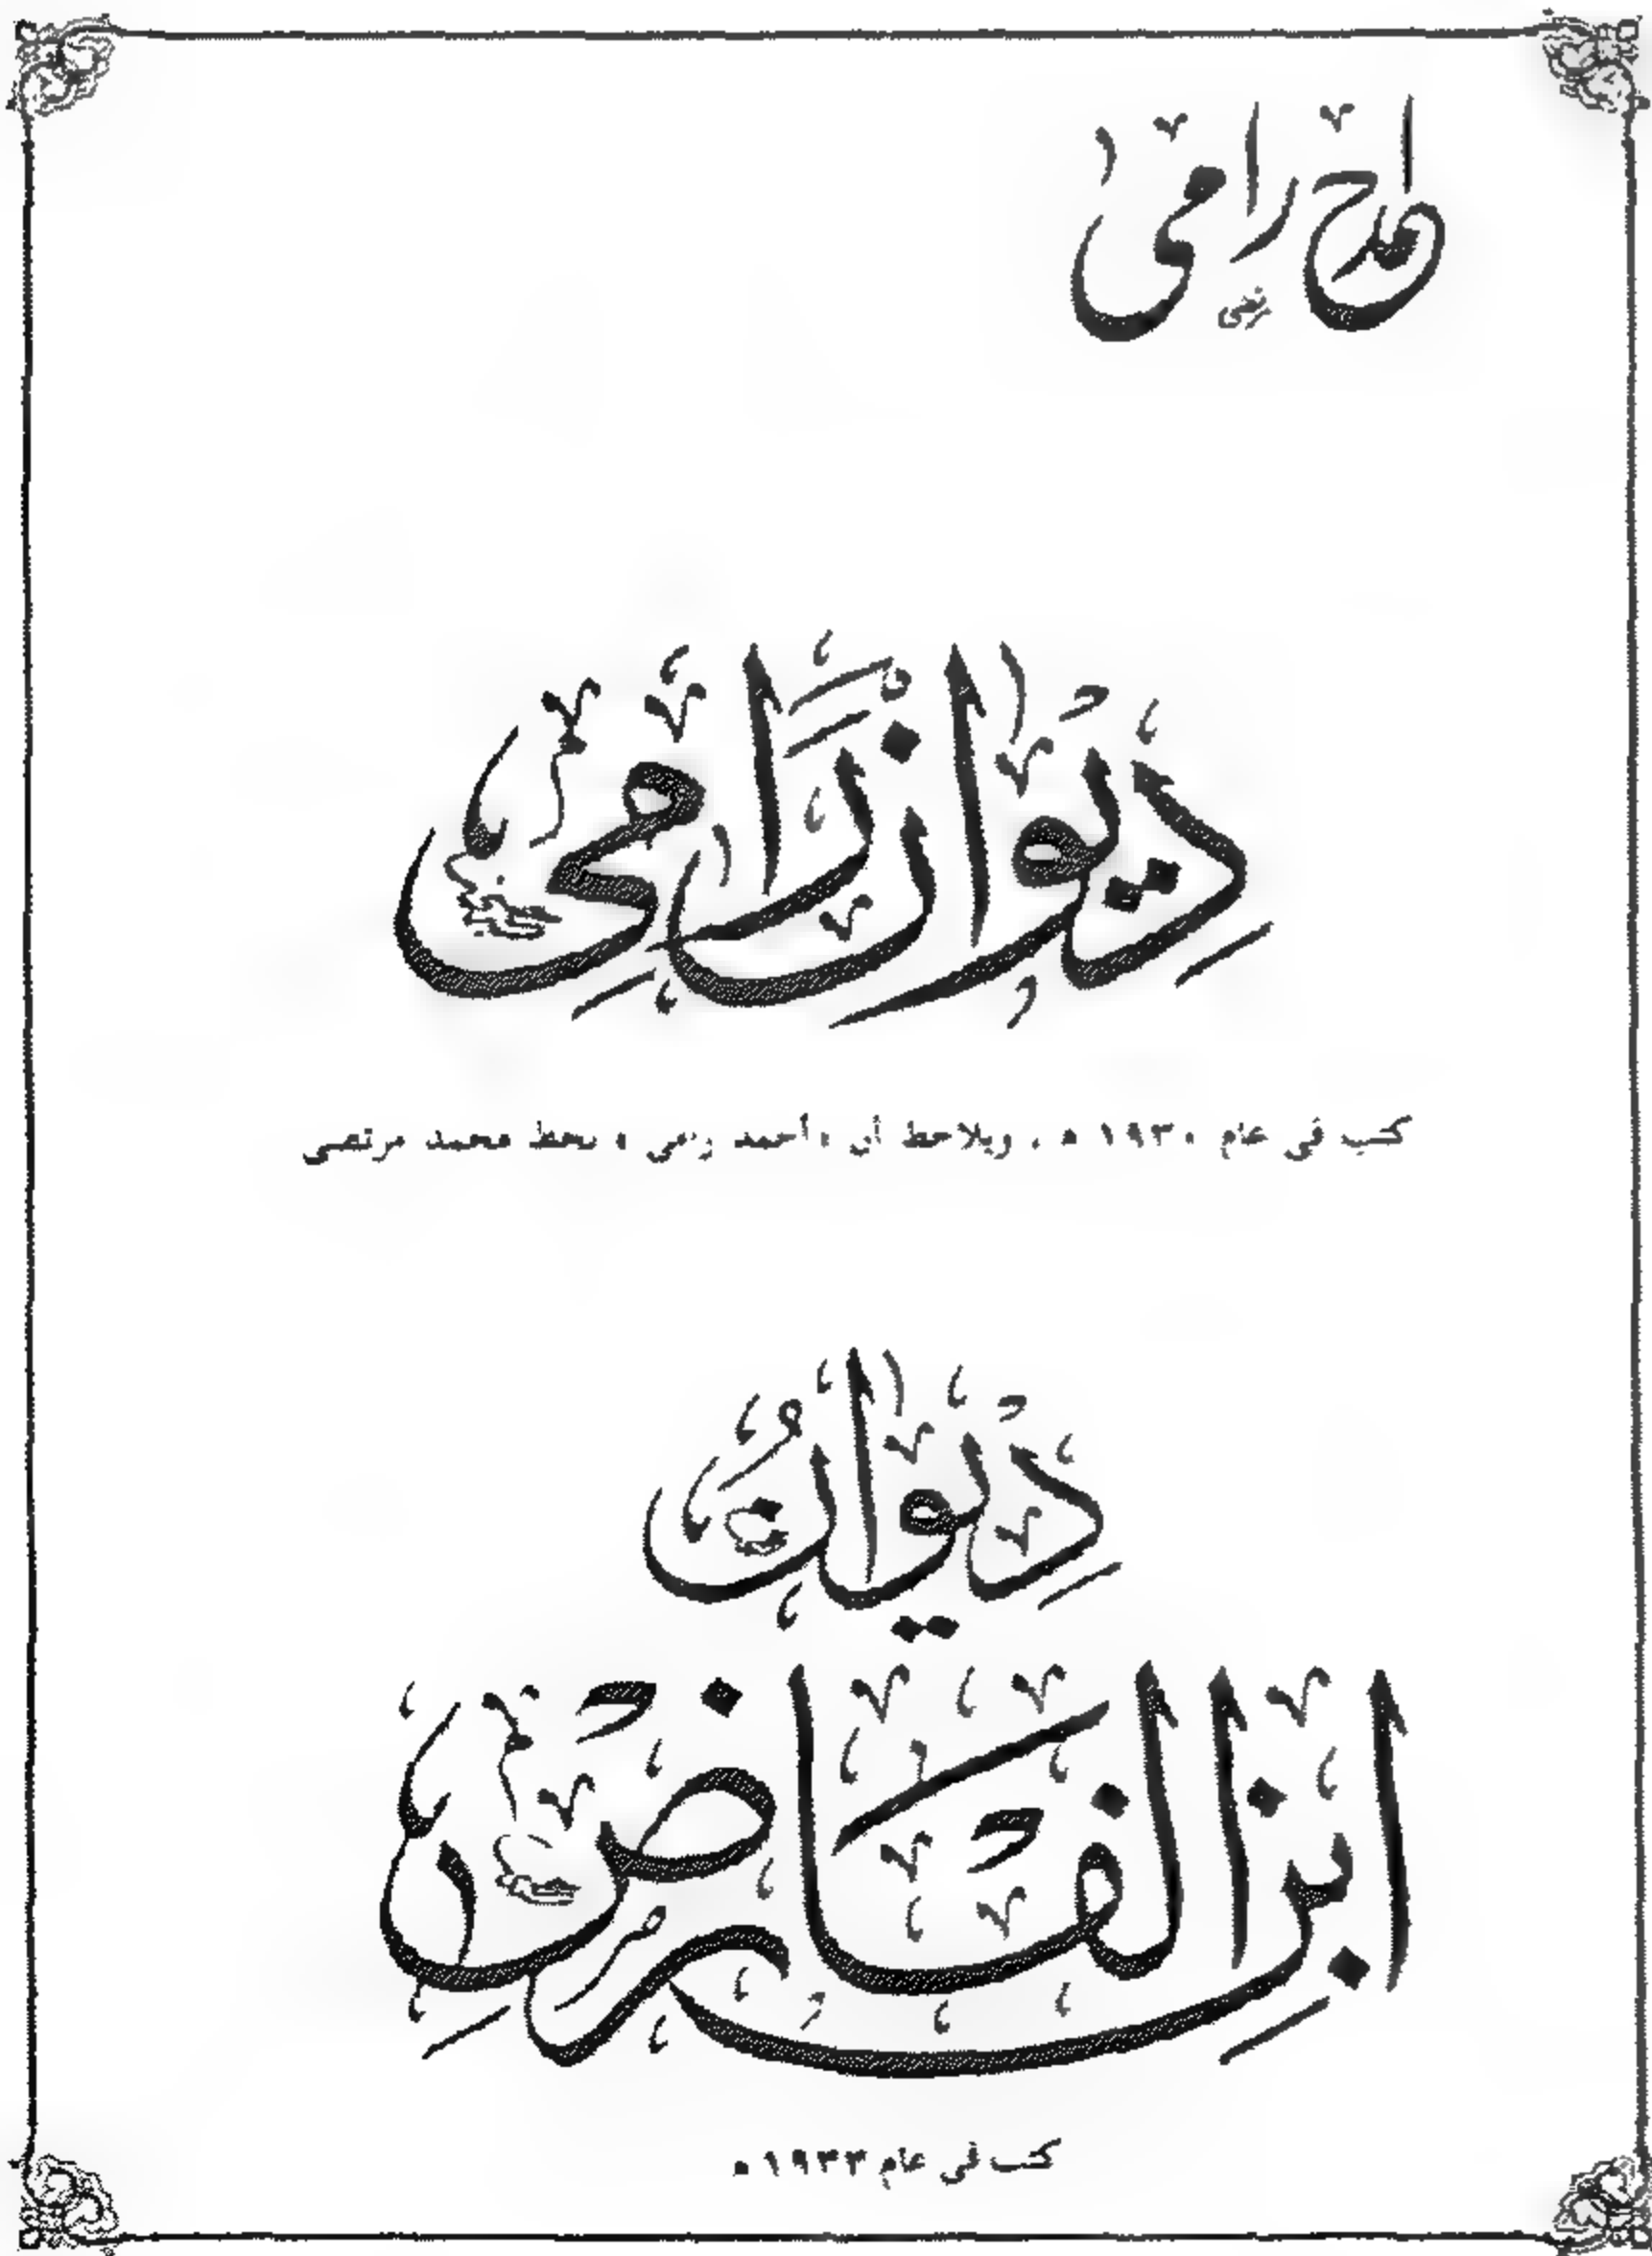 أحمد رامي
ديوان رامي
كتب فى عام ١٩٣٠ م . ويلاحظ أن « أحمد رامي » بخط محمد مرتضى
ديوان
ابن الفارض
كتب فى عام ١٩٣٣ م